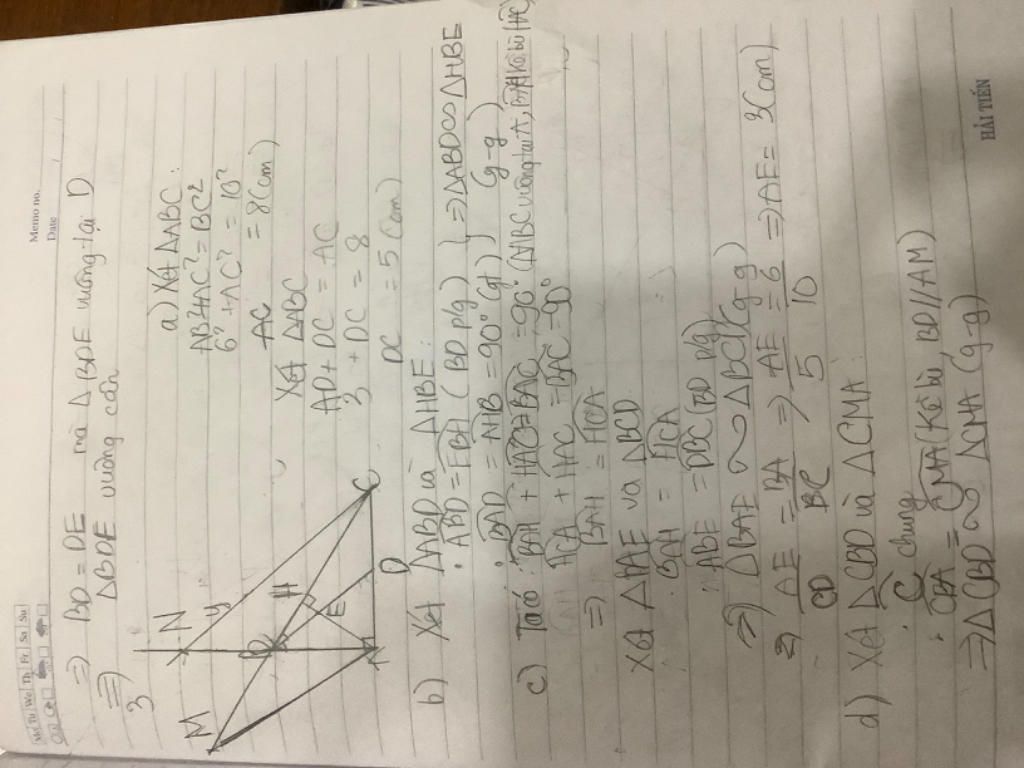 Memo no.
Date
Mo Tu We Th Fr Sa Su
⇒ BD = DE mà △BDE vuông tại D
⇒ △BDE vuông cân
3
M
N
y
B
H
E
A
D
C
a) Xét △ABC:
AB² + AC² = BC²
6² + AC² = 10²
AC = 8 (cm)
Xét △ABC
AD + DC = AC
3 + DC = 8
DC = 5 (cm)
b) Xét △ABD và △HBE:
ABD = EBH (BD p/g) } ⇒ △ABD ∽ △HBE
BAD = AHB = 90° (gt) (g-g)
c) Ta có: BAH + HAC = BAC = 90° (△ABC vuông tại A,
HCA + HAC = 90°
⇒ BAH = HCA
Xét △BAE và △BCD
BAH = HCA
ABE = DBC (BD p/g)
⇒ △BAE ∽ △BCD (g-g)
⇒ AE/CD = BA/BC ⇒ AE/5 = 6/10 ⇒ AE = 3 (cm)
d) Xét △CBD và △CMA:
C chung
CBA = CMA (Kề bù, BD//AM)
⇒ △CBD ∽ △CMA (g-g)
HẢI TIẾN